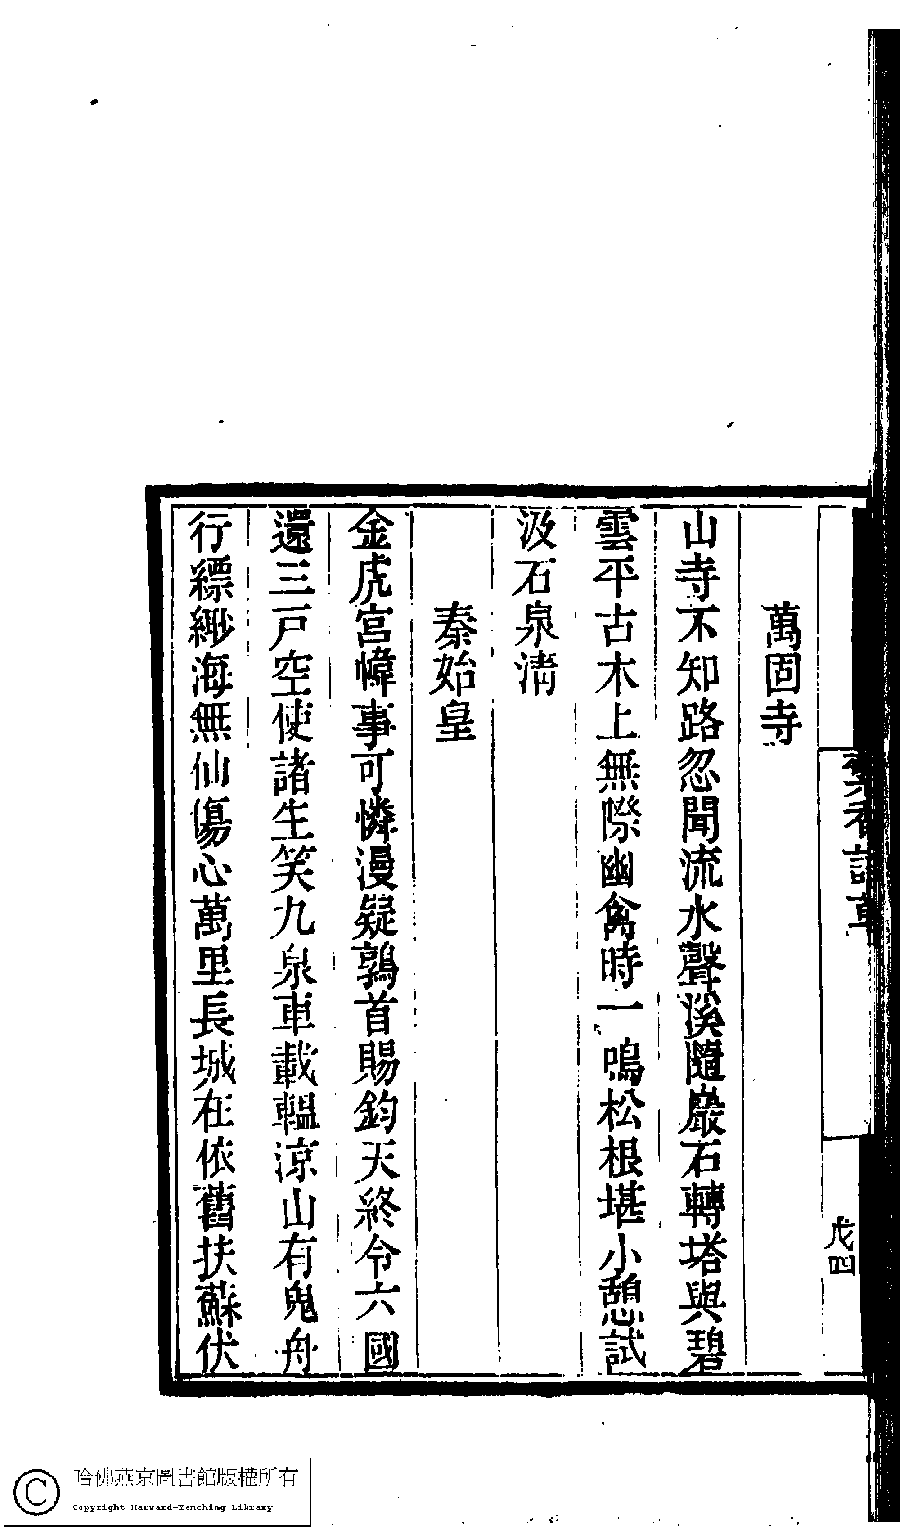 萬固寺
山寺不知路忽聞流水聲溪隨巖石轉塔與碧
雲平古木上無際幽禽時一鳴松根堪小憩試
汲石泉清
秦始皇
金虎宮幃事可憐漫疑鶉首賜鈞天終令六國
還三戸空使諸生笑九泉車載轀涼山有鬼舟
行縹緲海無仙傷心萬里長城在依舊扶蘇伏
香詩草
戊四
哈佛燕京圖書館版權所有
Copyright Harvard-Yenching Library